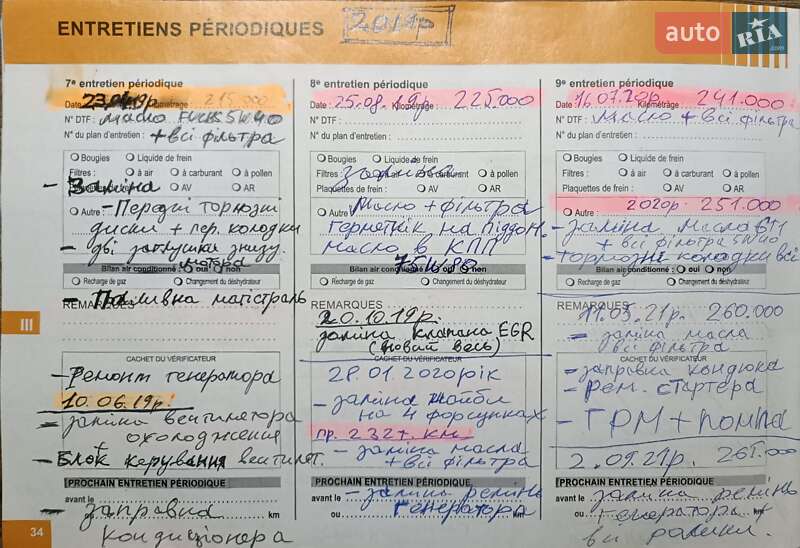 ENTRETIENS PÉRIODIQUES
2019р
auto RIA .com
7e entretien périodique
Date 23.04.19р. Kilométrage 215.000
N° DTF : Масло FUCHS 5W40
N° du plan d'entretien : + всі фільтра
Bougies Liquide de frein
Filtres : à air à carburant à pollen
- Заміна
Plaquettes de frein : AV AR
Autre : - Передні тормозні
диски + пер. колодки
- дві заглушки знизу
мотора
Bilan air conditionné : oui non
Recharge de gaz Changement du déshydrateur
- Паливна магістраль
REMARQUES
CACHET DU VÉRIFICATEUR
- Ремонт генератора
10.06.19р.
- заміна вентилятора
охолодження
+
- Блок керування вентилят.
PROCHAIN ENTRETIEN PÉRIODIQUE
avant le
- заправка
ou km
кондиціонера
8e entretien périodique
Date : 25.08.19р. Kilométrage 225.000
N° DTF :
N° du plan d'entretien :
Bougies Liquide de frein
Filtres : à air à carburant à pollen
заміна
Plaquettes de frein : AV AR
Autre : Масло + фільтра
герметнік на піддон.
масло в КПП
75W80
Bilan air conditionné : oui non
Recharge de gaz Changement du déshydrateur
REMARQUES
20.10.19р.
заміна клапана EGR
(новий весь)
CACHET DU VÉRIFICATEUR
28.01.2020рік
- заміна шайби
на 4 форсунках
пр. 232т. км
- заміна масла
+ всі фільтра
PROCHAIN ENTRETIEN PÉRIODIQUE
avant le - заміна ремінь
ou генератора
9e entretien périodique
Date : 16.07.20р Kilométrage 241.000
N° DTF : Масло + всі фільтра
N° du plan d'entretien :
Bougies Liquide de frein
Filtres : à air à carburant à pollen
Plaquettes de frein : AV AR
2020р. 251.000
Autre : - заміна масла
+ всі фільтра 5W40
- тормозні колодки всі
Bilan air conditionné : oui non
Recharge de gaz Changement du déshydrateur
REMARQUES 11.05.21р. 260.000
- заміна масла
всі фільтра
CACHET DU VÉRIFICATEUR
- заправка кондюка
- Рем. стартера
- ГРМ + помпа
2.09.21р. 265.000
PROCHAIN ENTRETIEN PÉRIODIQUE
avant le - заміна ремінь
ou генератора +
всі ролики.
III
34